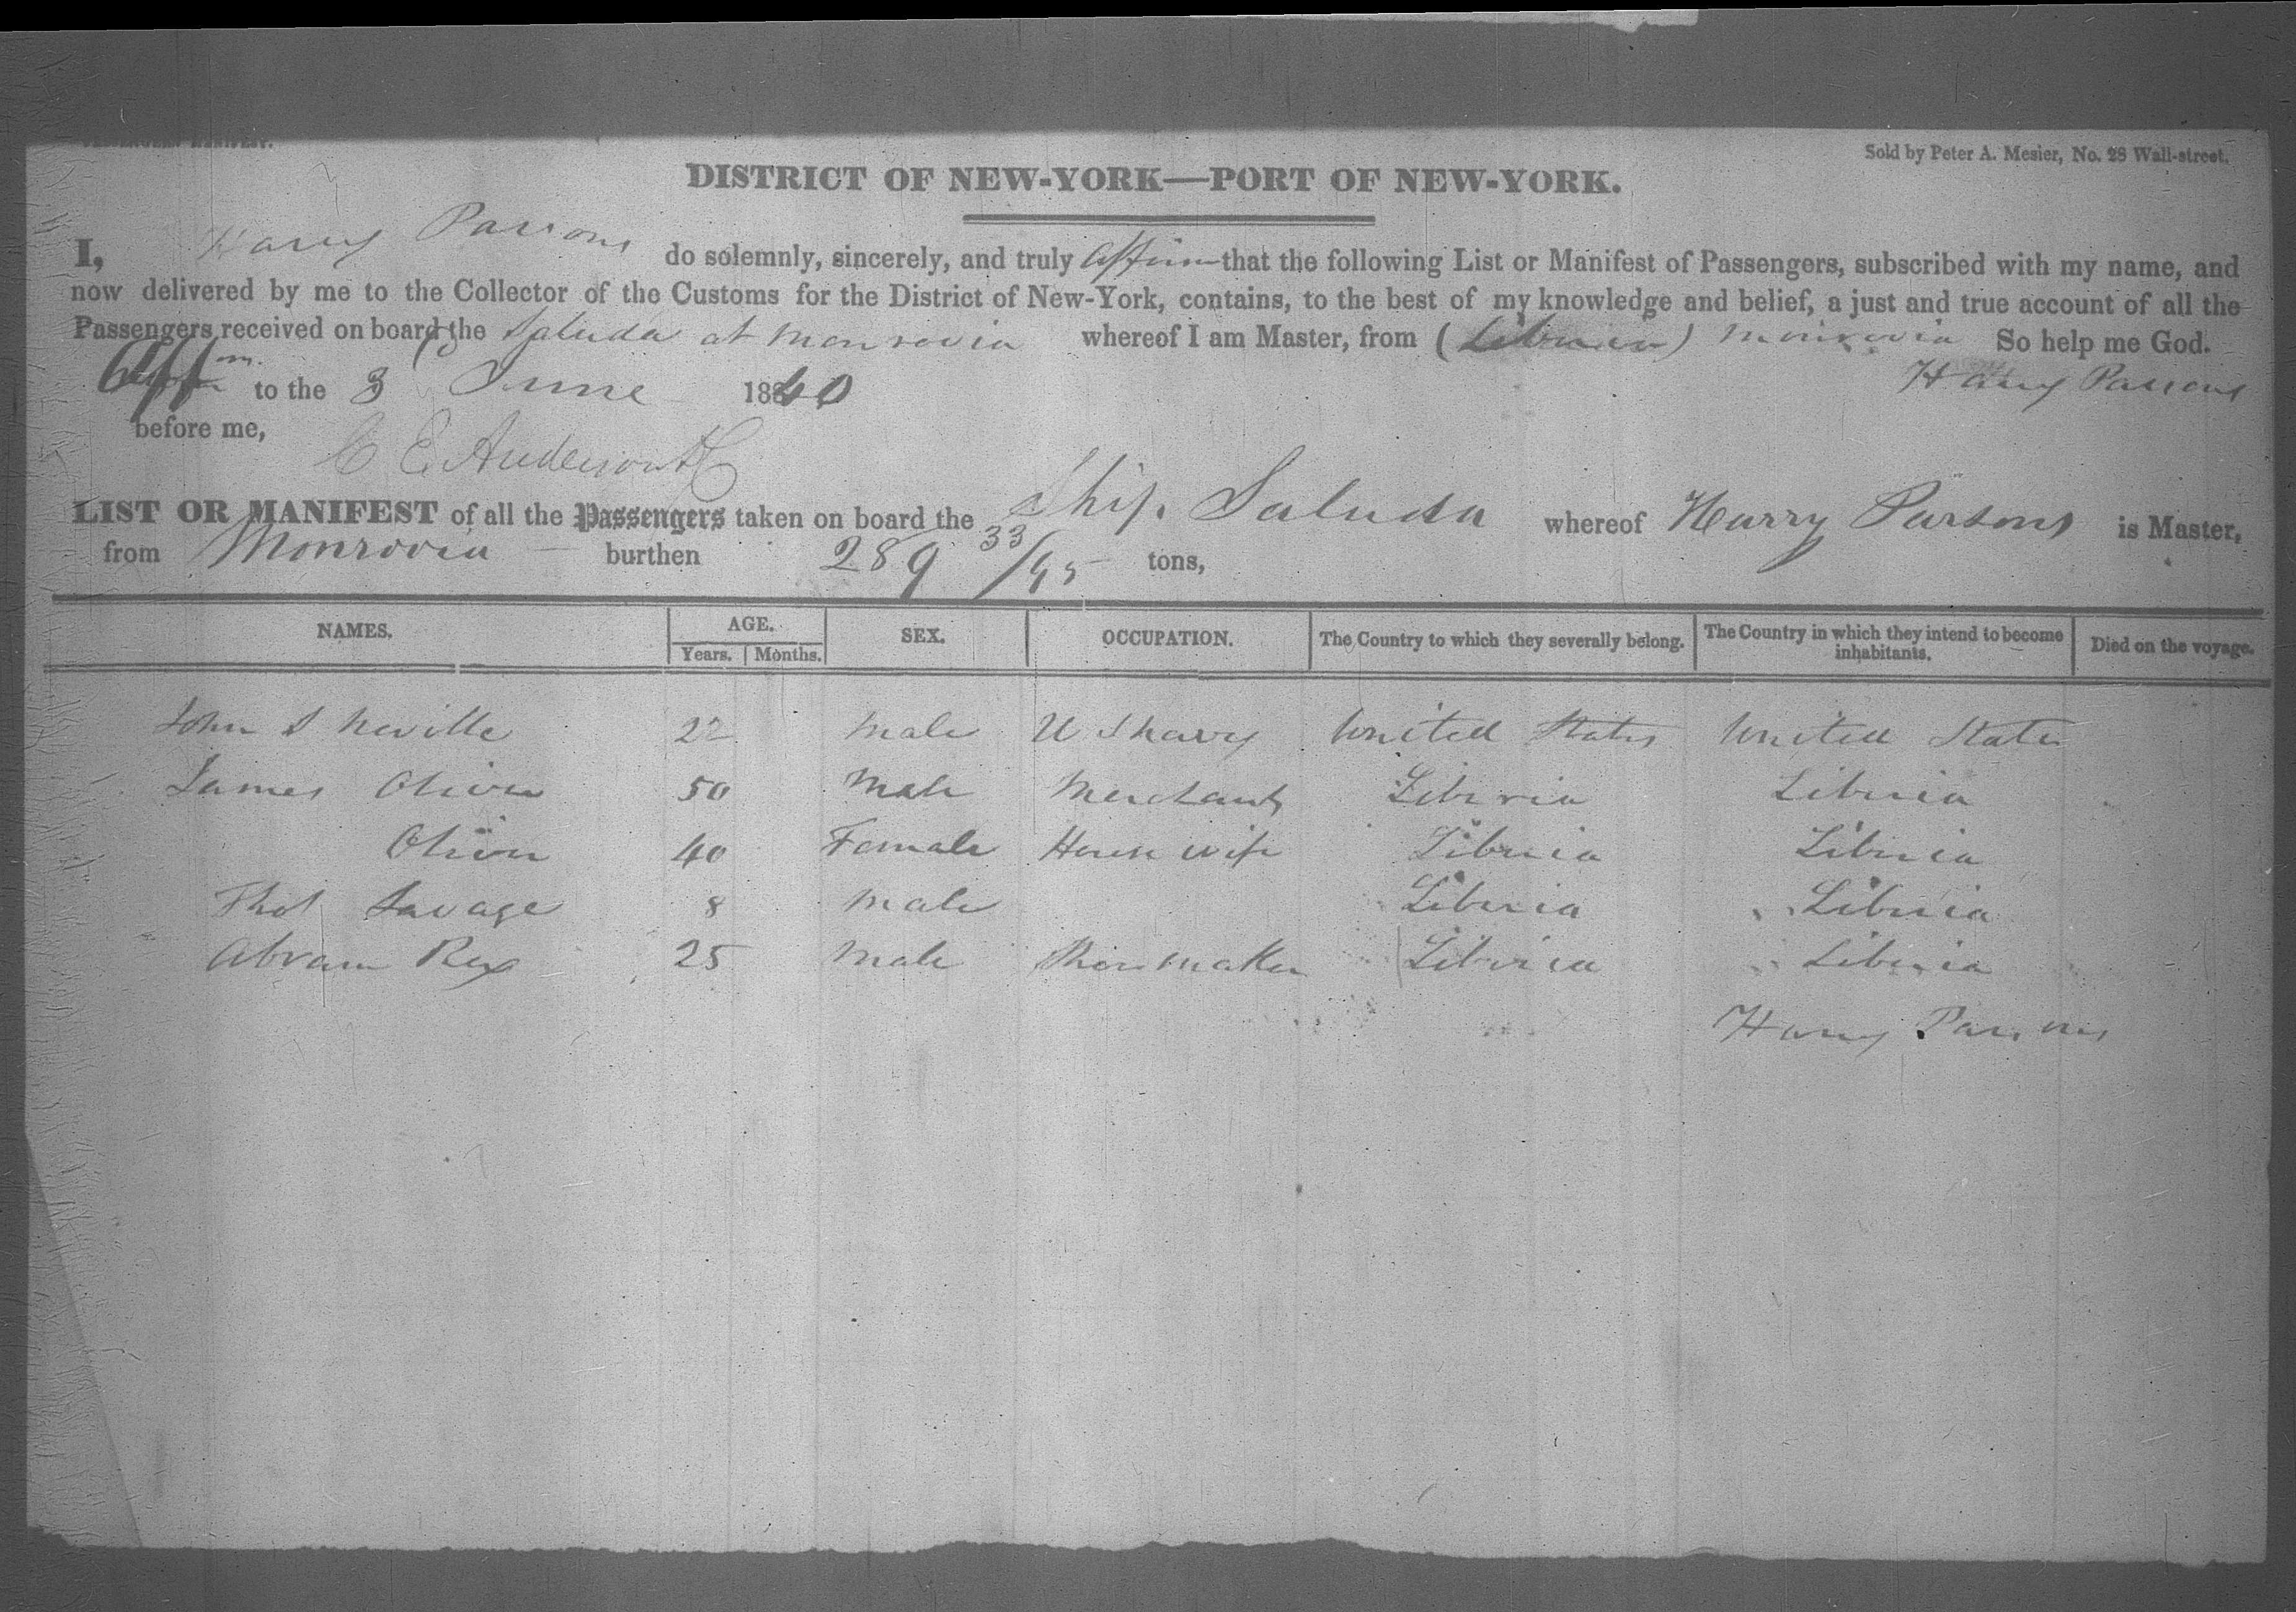 PASSENGERS MANIFEST.
Sold by Peter A. Mesier, No. 28 Wall-street.
DISTRICT OF NEW-YORK—PORT OF NEW-YORK.
I, Harry Parsons do solemnly, sincerely, and truly affirm that the following List or Manifest of Passengers, subscribed with my name, and
now delivered by me to the Collector of the Customs for the District of New-York, contains, to the best of my knowledge and belief, a just and true account of all the
Passengers received on board the Saluda at Monrovia whereof I am Master, from (Liberia) Monrovia So help me God.
to the 3 June 1840 Harry Parsons
before me,
C E Anderson
LIST OR MANIFEST of all the Passengers taken on board the Ship Saluda whereof Harry Parsons is Master,
from Monrovia — burthen 289 33/95 tons,
NAMES. AGE. Years. Months. SEX. OCCUPATION. The Country to which they severally belong. The Country in which they intend to become inhabitants. Died on the voyage.
John S Neville 22 Male U S Navy United States United States
James Oliver 50 Male Merchant Liberia Liberia
Oliver 40 Female House wife Liberia Liberia
Thos Savage 8 Male Liberia Liberia
Abram Rex 25 Male Shoemaker Liberia Liberia
Harry Parsons